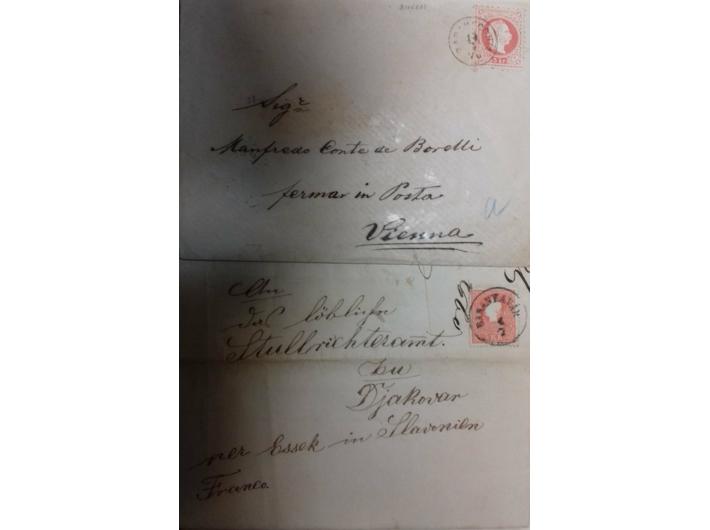 Sigr
Manfredo Conte de Borelli
fermar in Posta
Vienna
a
An
das löbliche
Stullrichteramt.
zu
Djakovar
per Essek in Slavonien
Franco.